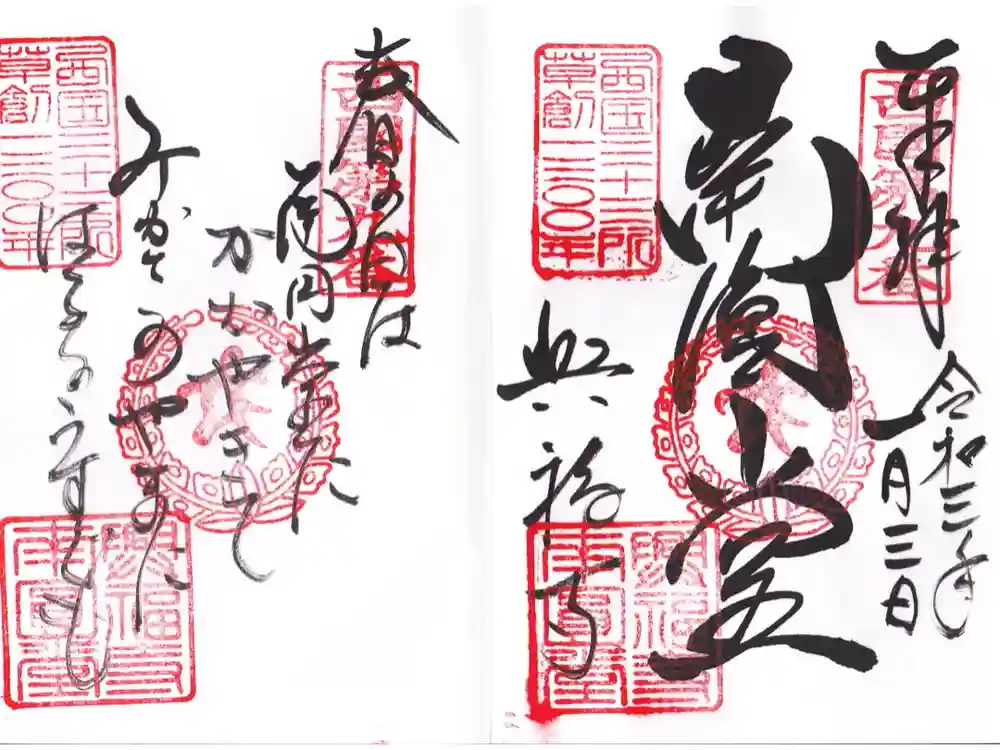 奉拝
西国第九番
令和三年
一月三日
南圓堂
西国三十三所
草創一三〇〇年
興福寺
興福寺
南圓堂
春の日は
西国第九番
南円堂に
かかやきて
みかさのやまに
はるるうすくも
西国三十三所
草創一三〇〇年
興福寺
南圓堂